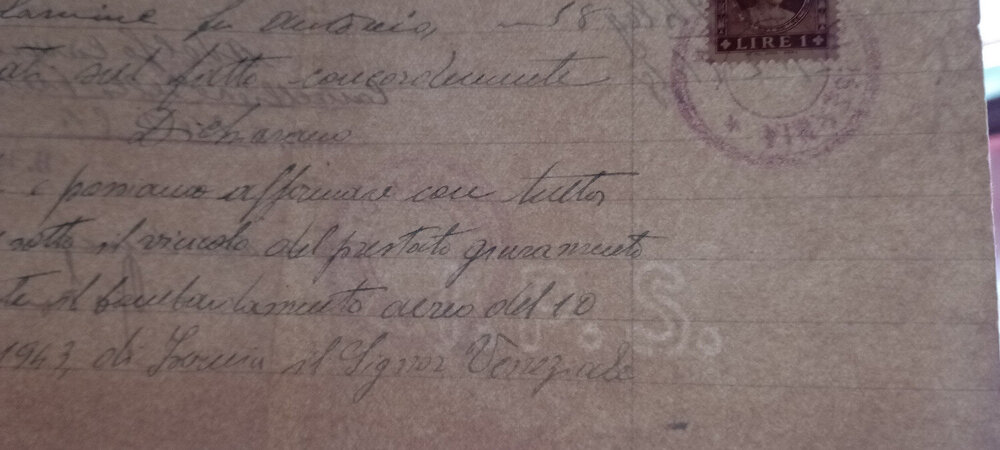 fu Antonio, 58
LIRE 1
sul fatto concordemente
Dichiarano
e possiamo affermare con tutto
sotto il vincolo del prestato giuramento
il bombardamento aereo del 10
1943, di Isernia il Signor Veneziale
P. S.